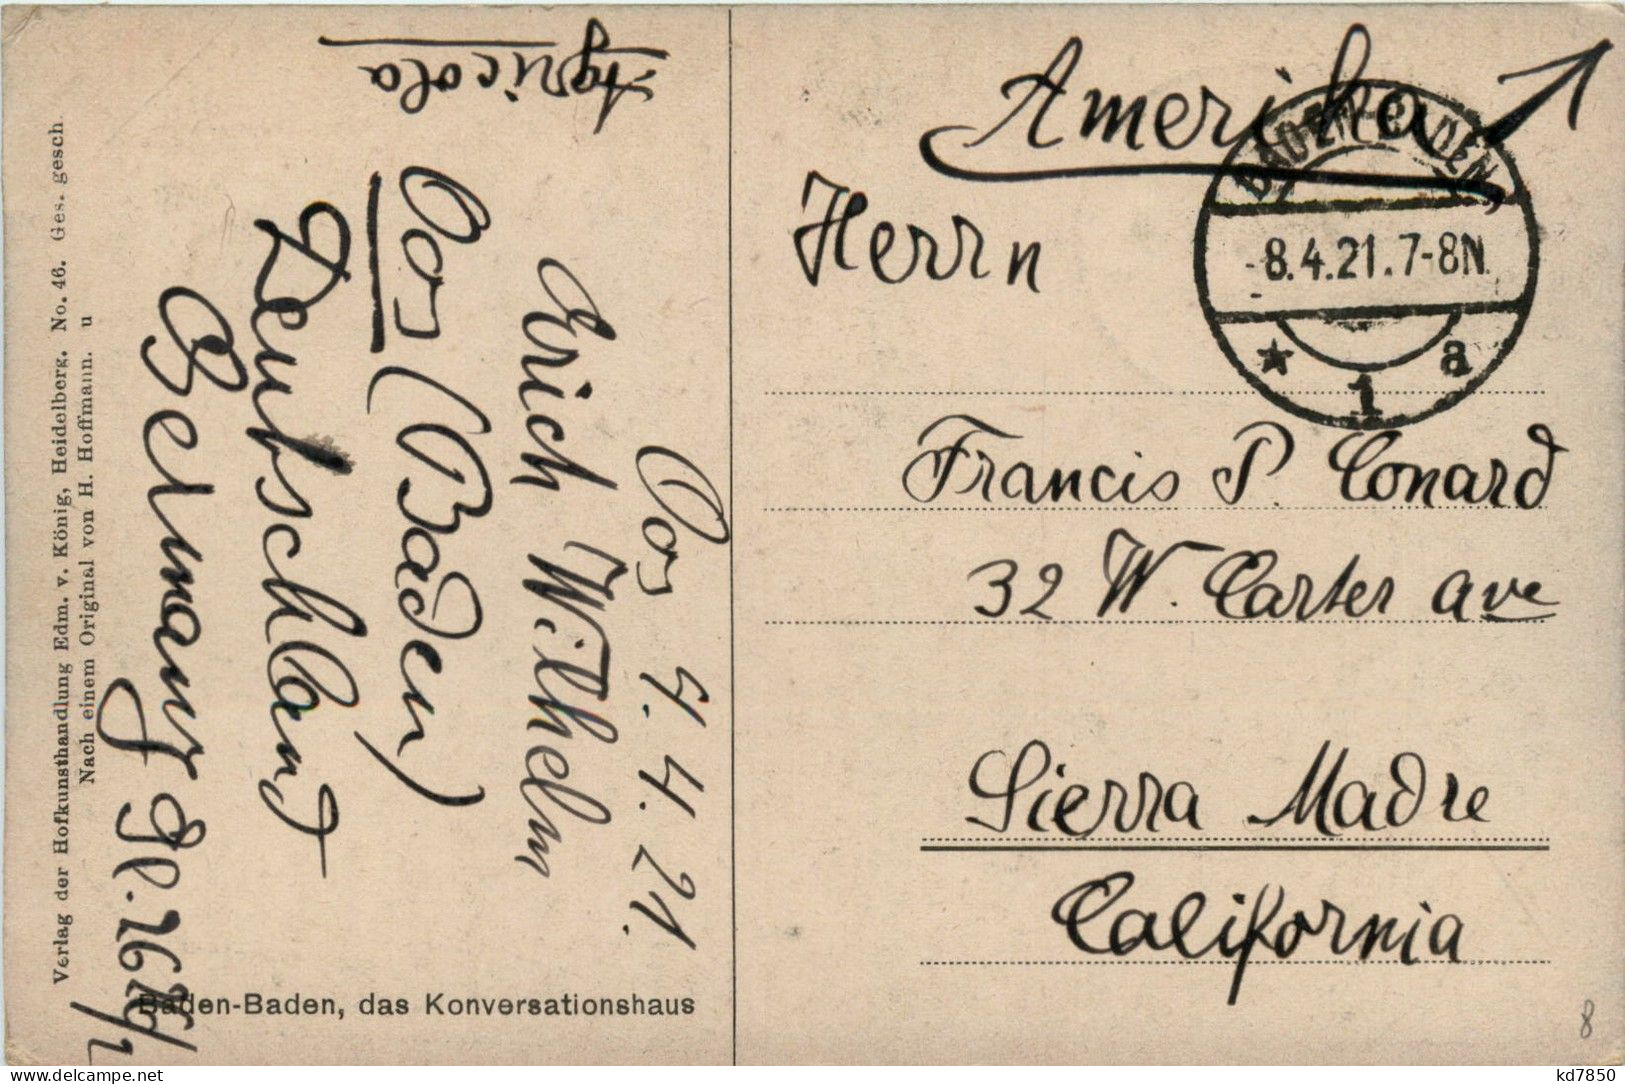 Amerika
BADEN-BADEN
-8.4.21.7-8N.
* 1 a
Herrn
Francis P. Conard
32 W. Carter ave
Sierra Madre
California
8
Oos 4. 4. 21.
Erich Wilhelm
Agricola
Oos (Baden)
Deutschland
Germany
Verlag der Hofkunsthandlung Edm. v. König, Heidelberg. No. 46. Ges. gesch.
Nach einem Original von H. Hoffmann. u
Baden-Baden, das Konversationshaus
www.delcampe.net
kd7850